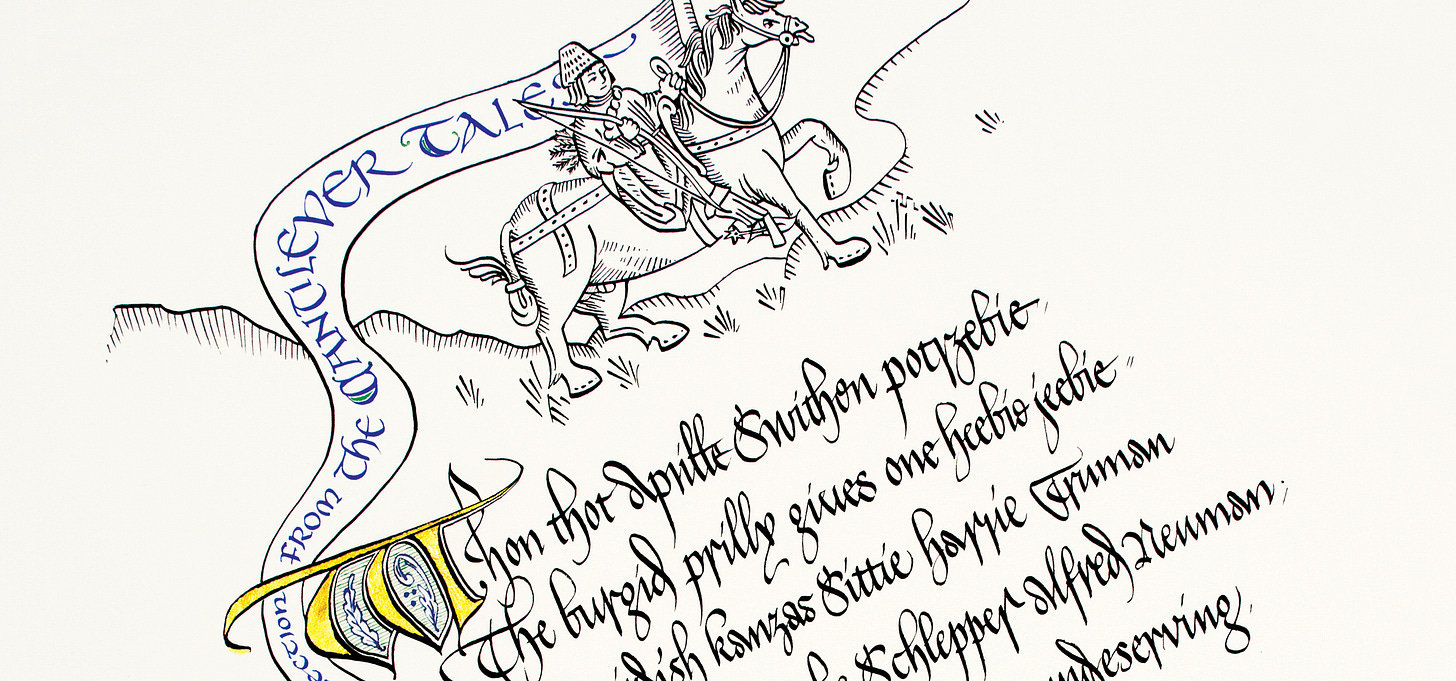 FROM The CANTLEVER TALES
Whon thot Aprille Swithon potrzebie,
The burgid prilly gives one heebie jeebie,
kanzas Sittie harrie Truman
Schlepper Alfred Neuman,